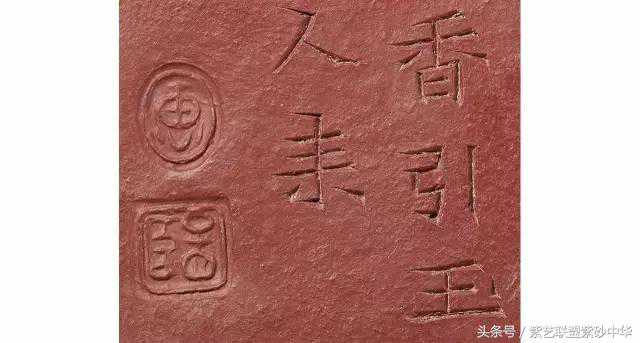 香引玉
人来
头条号 / 紫艺联盟紫砂中华